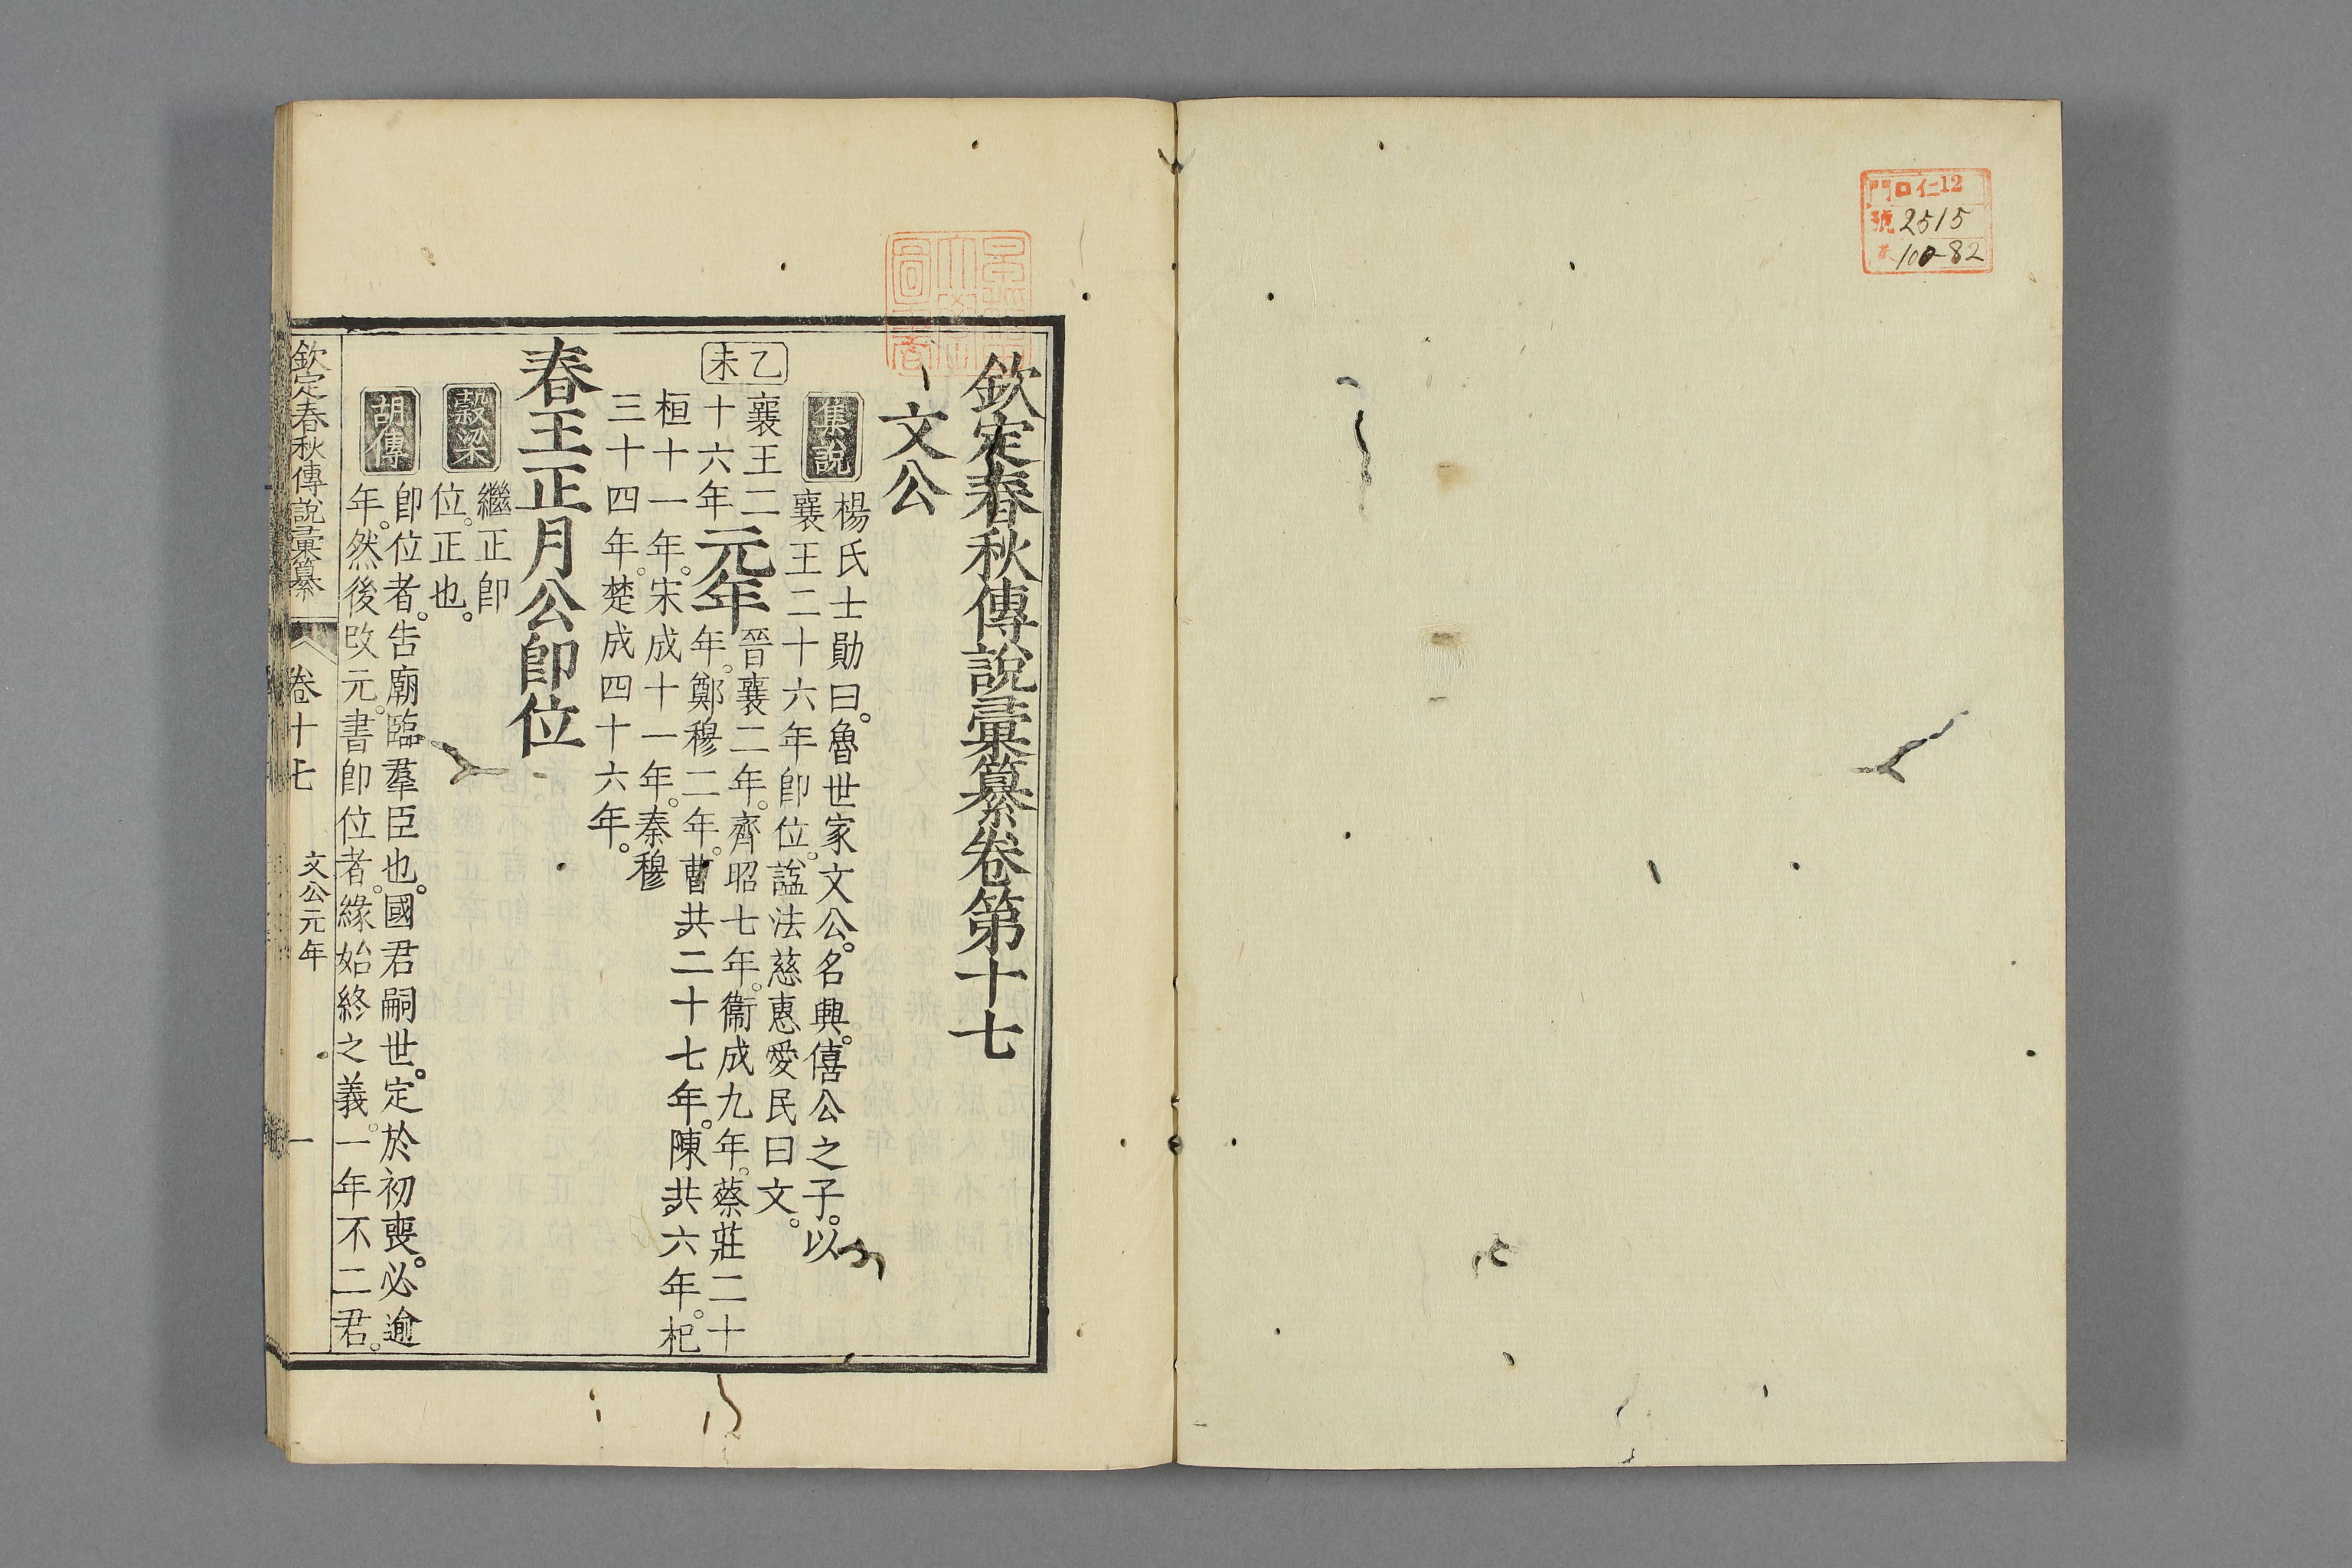 門ロ仁12
號2515
100-82
欽定春秋傳說彙纂卷第十七
文公
集說
楊氏士勛曰。魯世家文公。名興。僖公之子。以
襄王二十六年卽位。諡法慈惠愛民曰文。
乙未
襄王二
十六年
元年
晉襄二年。齊昭七年。衞成九年。蔡莊二十
年。鄭穆二年。曹共二十七年。陳共六年。杞
桓十一年。宋成十一年。秦穆
三十四年。楚成四十六年。
春王正月公卽位
穀梁
繼正卽
位。正也。
胡傳
卽位者。告廟臨羣臣也。國君嗣世。定於初喪。必逾
年。然後改元。書卽位者。緣始終之義。一年不二君。
欽定春秋傳說彙纂
卷十七
文公元年
一